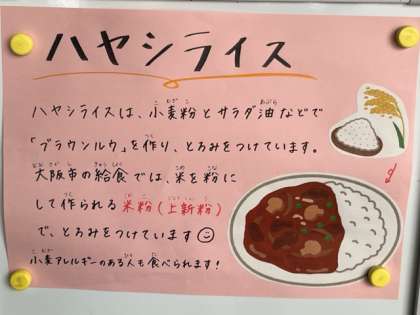 ハヤシライス
ハヤシライスは、小麦粉とサラダ油などで
「ブラウンルウ」を作り、とろみをつけています。
大阪市の給食では、米を粉に
して作られる米粉(上新粉)
で、とろみをつけています
小麦アレルギーのある人も食べられます!